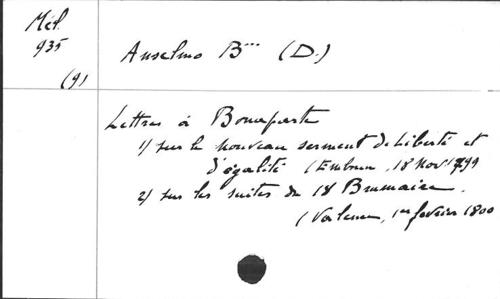 Mél.
935
(9)
Anselmo B*** (D.)
Lettres à Bonaparte
1) sur le nouveau serment de Liberté et
d'égalité (Embrun, 18 Nov 1799
2) sur les suites du 18 Brumaire.
(Valence, 1er février 1800